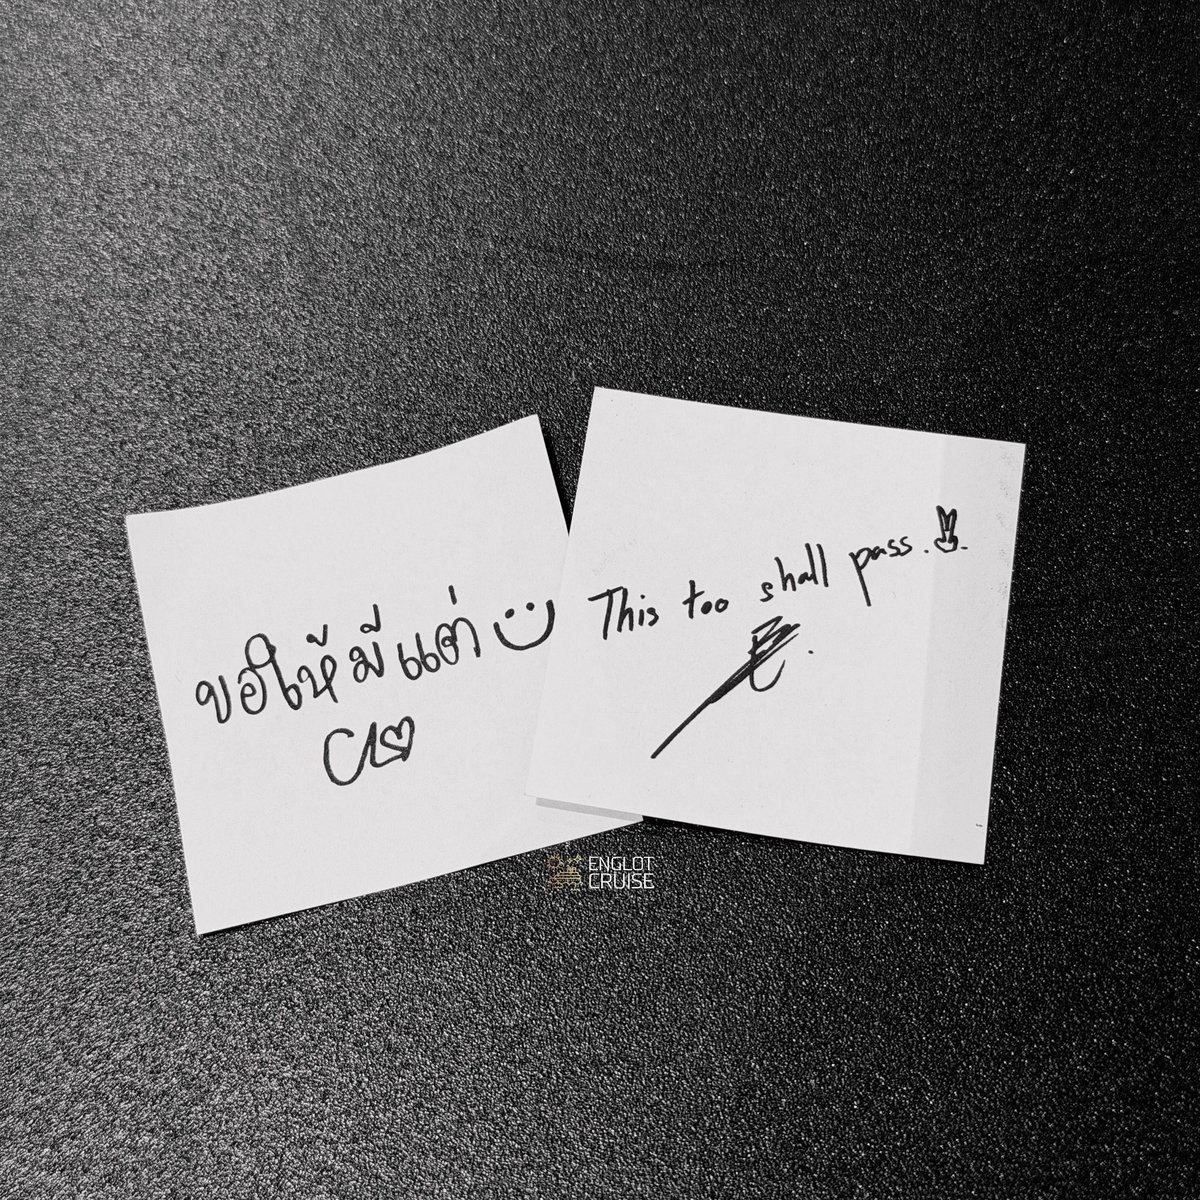 ขอให้มีแต่
This too shall pass.
ENGLOT
CRUISE